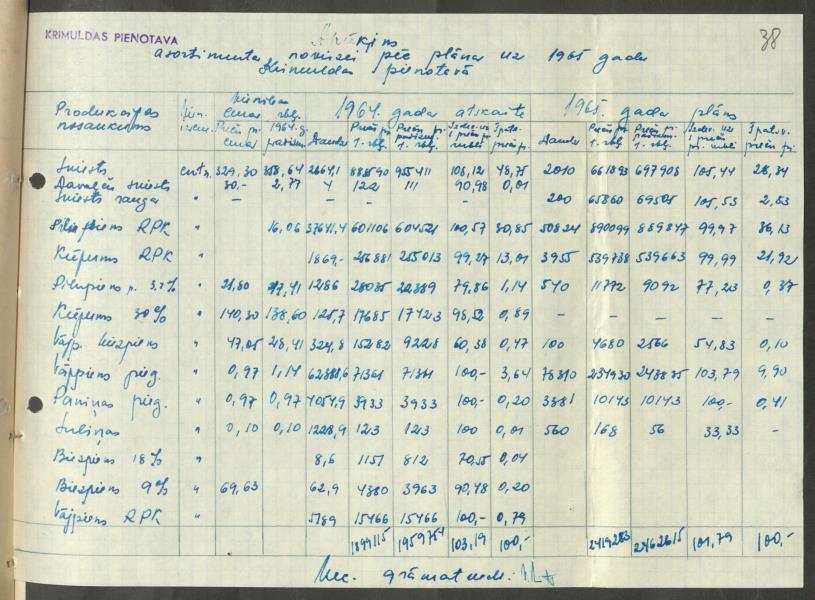 KRIMULDAS PIENOTAVA
38
Aprēķins
asortimenta novirzei pēc plāna uz 1965 gadu
Krimuldas pienotavā
Produkcijas nosaukums Vienības cenas rbļ. 1964. gada atskaite 1965. gada plāns
Sviests cntn. 329,30 358,64 2664,1 888590 955411 108,12 48,75 2010 661893 697908 105,44 28,84
Davaļču sviests " 30,- 2,77 4 122 111 90,98 0,01
Sviests " - - - - - 200 65860 69505 105,53 2,83
RPK " 16,06 37641,4 601106 604521 100,57 30,85 50824 890099 889847 99,97 36,13
Krējums RPK " 1869,- 256881 255013 99,27 13,01 3955 539738 539663 99,99 21,92
Pilnpiens p. 3,2% " 21,80 17,41 1286 28035 22389 79,86 1,14 540 11772 9092 77,23 0,37
Krējums 30% " 140,30 138,60 125,7 17685 17423 98,52 0,89 - - - -
Vājp. biezpiens " 47,05 28,41 324,8 15282 9228 60,38 0,47 100 4680 2566 54,83 0,10
Vājpiens pieg. " 0,97 1,14 71361 71361 100,- 3,64 78310 234930 243835 103,79 9,90
Paniņas pieg. " 0,97 0,97 4054,9 3933 3933 100,- 0,20 3381 10143 10143 100,- 0,41
Sulsiņas " 0,10 0,10 1228,9 123 123 100 0,01 560 168 56 33,33 -
Biezpiens 18% " 8,6 1151 812 70,55 0,04
Biezpiens 9% " 69,63 62,9 4380 3963 90,48 0,20
Vājpiens RPK " 5189 15466 15466 100,- 0,79
1899115 1959754 103,19 100,- 2419283 2462615 101,79 100,-
Vec. grāmatvedis: